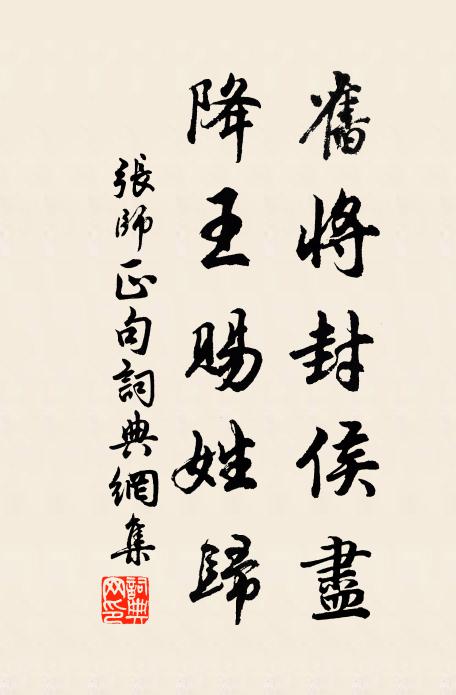 舊將封侯盡
降王賜姓歸
張師正句詞典網集
詞典網印